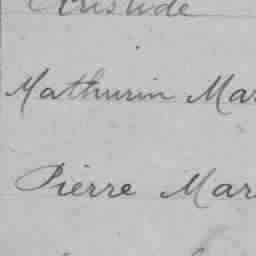 Aristide
Mathurin Mar
Pierre Mar